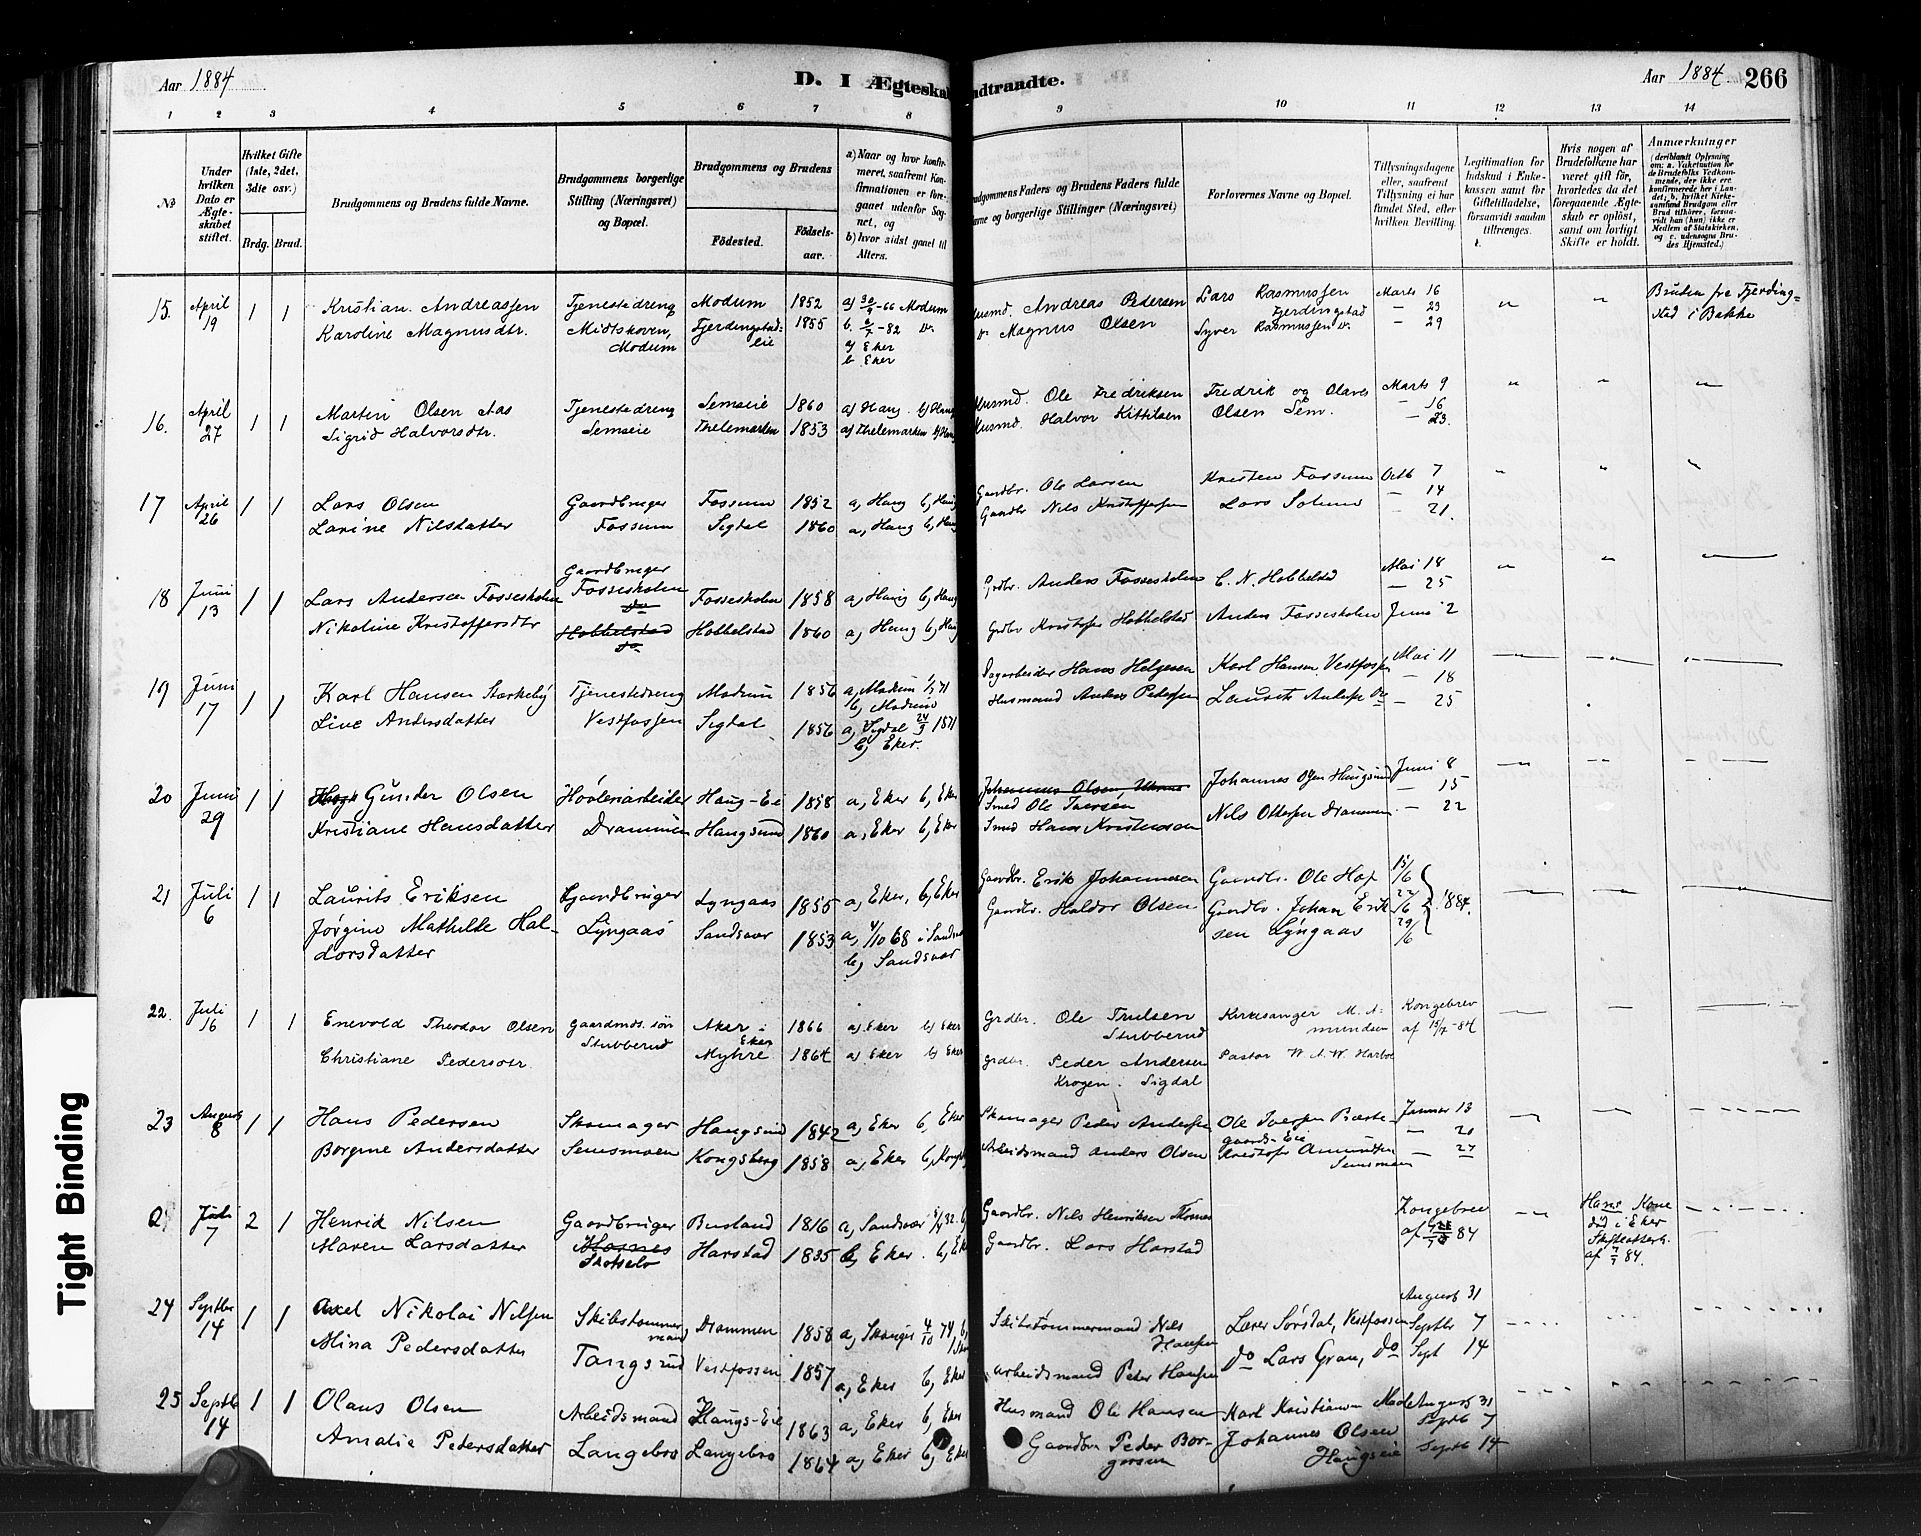 Aar 1884
D. I Ægteskab
ndtraadte.
Aar 1884. 266
1 2 3 4 5 6 7 8 9 10 11 12 13 14
No
Under hvilken Dato er Ægteskabet stiftet.
Hvilket Gifte (1ste, 2det, 3die osv.)
Brdg. Brud.
Brudgommens og Brudens fulde Navne.
Brudgommens borgerlige Stilling (Næringsvei) og Bopæl.
Brudgommens og Brudens
Födested.
Födselsaar.
a) Naar og hvor konfirmeret, saafremt Konfirmationen er foregaaet udenfor Sognet, og
b) hvor sidst gaaet til Alters.
udgommens Faders og Brudens Faders fulde
vne og borgerlige Stillinger (Næringsvei)
Forlovernes Navne og Bopæl.
Tillysningsdagene eller, saafremt Tillysning ei har fundet Sted, efter hvilken Bevilling.
Legitimation for Indskud i Enkekassen samt for Giftetilladelse, forsaavidt saadan tiltrænges.
Hvis nogen af Brudefolkene har været gift för, hvorledes da det foregaaende Ægteskab er oplöst, samt om lovligt Skifte er holdt.
Anmærkninger
15. April 19 1 1 Kristian Andreassen Tjenestedreng Modum 1852 a) 30/9-66 Modum
Karoline Magnusdtr. Midtskoven, Modum Fjerdingstadeie 1855 b. 2/7-82 do.
a) Eker
b Eker
Husmd. Andreas Pedersen Lars Rasmussen Fjerdingstad Marts 16
do Magnus Olsen Syver Rasmussen do. — 23
— 29
Bruden fra Fjerdingstad i Bakke
16. April 27 1 1 Martin Olsen Aas Tjenestedreng Semseie 1860 a) Haug. b) Haug
Sigrid Halvorsdtr. Semseie Thelemarken 1853 a) Thelemarken b) Haug
Husmd. Ole Fredriksen Fredrik og Olaves Marts 9
Husmd. Halvor Kittilsen Olsen Sem. — 16
— 23.
17 April 26 1 1 Lars Olsen Gaardbruger Fossum 1852 a, Haug b, Haug
Larine Nilsdatter Fossum Sigdal 1860 a, Haug b, Haug
Gaardbr. Ole Larsen Kristen Fossum Octb 7
Gaardbr Nils Kristoffersen Lars Solum — 14
— 21.
18 Juni 13 1 1 Lars Andersen Fossesholm Gaardbruger Fossesholm Fossesholm 1858 a, Haug b, Haug
Nikoline Kristoffersdtr Hobbelstad Hobbelstad 1860 a, Haug b, Haug
Grdbr. Anders Fossesholm C. N. Hobbelstad Mai 18
— 25
Grdbr Kristofer Hobbelstad Anders Fossesholm Juni 2
19 Juni 17 1 1 Karl Hansen Storkeby Tjenestedreng Modum 1856 a, Modum 1/7 71
b, Modum
Live Andersdatter Vestfossen Sigdal 1856 a, Sigdal 24/9 1871
b, Eker.
Dagarbeider Hans Helgesen Karl Hansen Vestfossen Mai 11
— 18
Husmand Anders Pedersen Laurits Andersen do — 25
20 Juni 29 1 1 Gunder Olsen Høvleriarbeider Haug-Ei 1858 a, Eker b, Eker
Kristiane Hansdatter Drammen Haugsund 1860 a, Eker b, Eker
Smed Ole Iversen Johannes Olsen Haugsund Juni 8
— 15
Smed Hans Kristensen Nils Ottersen Drammen. — 22
21 Juli 6 1 1 Laurits Eriksen Gaardbruger Lyngaas 1855 a, Eker, b, Eker
Jørgine Mathilde Haldorsdatter Lyngaas Sandsvær 1853 a, 4/10 68 i Sandsv
b, Sandsvær
Gaardbr. Erik Johannesen Gaardbr. Ole Hof 15/6
Gaardbr. Haldor Olsen Gaardbr. Johan Eriksen Lyngaas 22/6 1884.
29/6
22. Juli 16 1 1 Enevold Theodor Olsen Gaardmds. søn Aker i Eker 1866 a) Eker b) Eker
Christiane Pedersdtr. Stubberud Myhre 1864 a) Eker b) Eker
Grdbr. Ole Trulsen Stubberud Kirkesanger M. Amundsen Kongebrev
af 15/7-84
Grdbr. Peder Andersen Krogen. Sigdal Pastor W. A. W. Harboe
23 August 8 1 1 Hans Pedersen Skomager Haugsund 1842 a, Eker b, Eker
Borgine Andersdatter Semsmoen Kongsberg 1858 a, Eker b, Kongsbg
Skomager Peder Andersen Ole Iversen Bæstegaards-Eie Januar 13
— 20
Arbeidsmand Anders Olsen Kristofer Amundsen Semsmoen — 27
Juli 7 2 1 Henrik Nilsen Gaardbruger Busland 1816 a, Sandsvær
Maren Larsdatter Hornes Skotselv Harstad 1835 b, Eker. b, Eke
Gaardbr. Nils Henriksen Hornes Kongebrev
Gaardbr. Lars Harstad af 84
Hans Kone
død i Eker
Skifteattest
af 7/7 84.
24 Septbr 14 1 1 Axel Nikolai Nilsen Skibstømmermand Drammen 1858 a, Skauger 4/10 74 b,
Mina Pedersdatter Tangsrud Vestfossen 1857 a, Eker b, Eker
Skibstømmermand Nils Hansen Lærer Sørsdal, Vestfossen August 31
Septbr 7
Arbeidsmand Peter Hansen do Lars Gran, do Sept 14
25 Septb 14 1 1 Olaus Olsen Arbeidsmand Haugs-Eie 1863 a, Eker b, Eker
Amalie Pedersdatter Langebro Langebro 1864 a, Eker b, Eker
Husmand Ole Hansen Karl Kristiansen Moe August 31
Septb 7
Gaardbr Peder Borgersen Johannes Olsen Haugseie Septb 14
Tight Binding